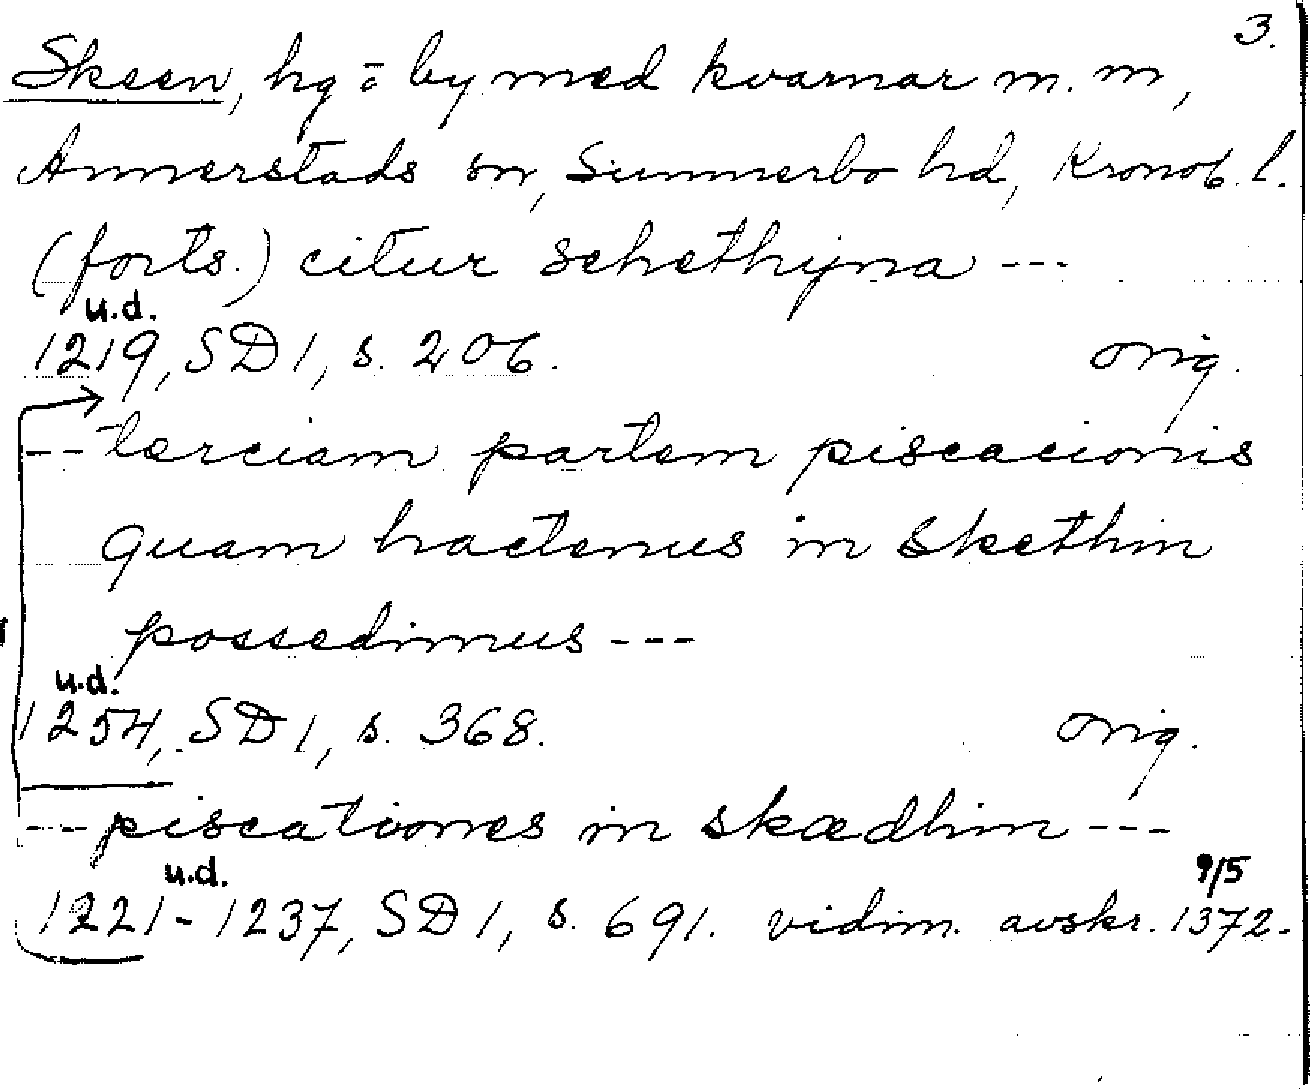 3.
Skeen, hg = by med kvarnar m. m,
Annerstads sn, Sunnerbo hd, Kronob. l.
(forts.) citur schethyna ---
u.d.
1219, SD 1, s. 206. orig.
--- terciam partem piscacionis
quam hactenus in Skethin
possedimus ---
u.d.
1254, SD 1, s. 368. orig.
--- piscationes in skædhin ---
u.d. 9/5
1221 - 1237, SD 1, s. 691. vidim. avskr. 1372.